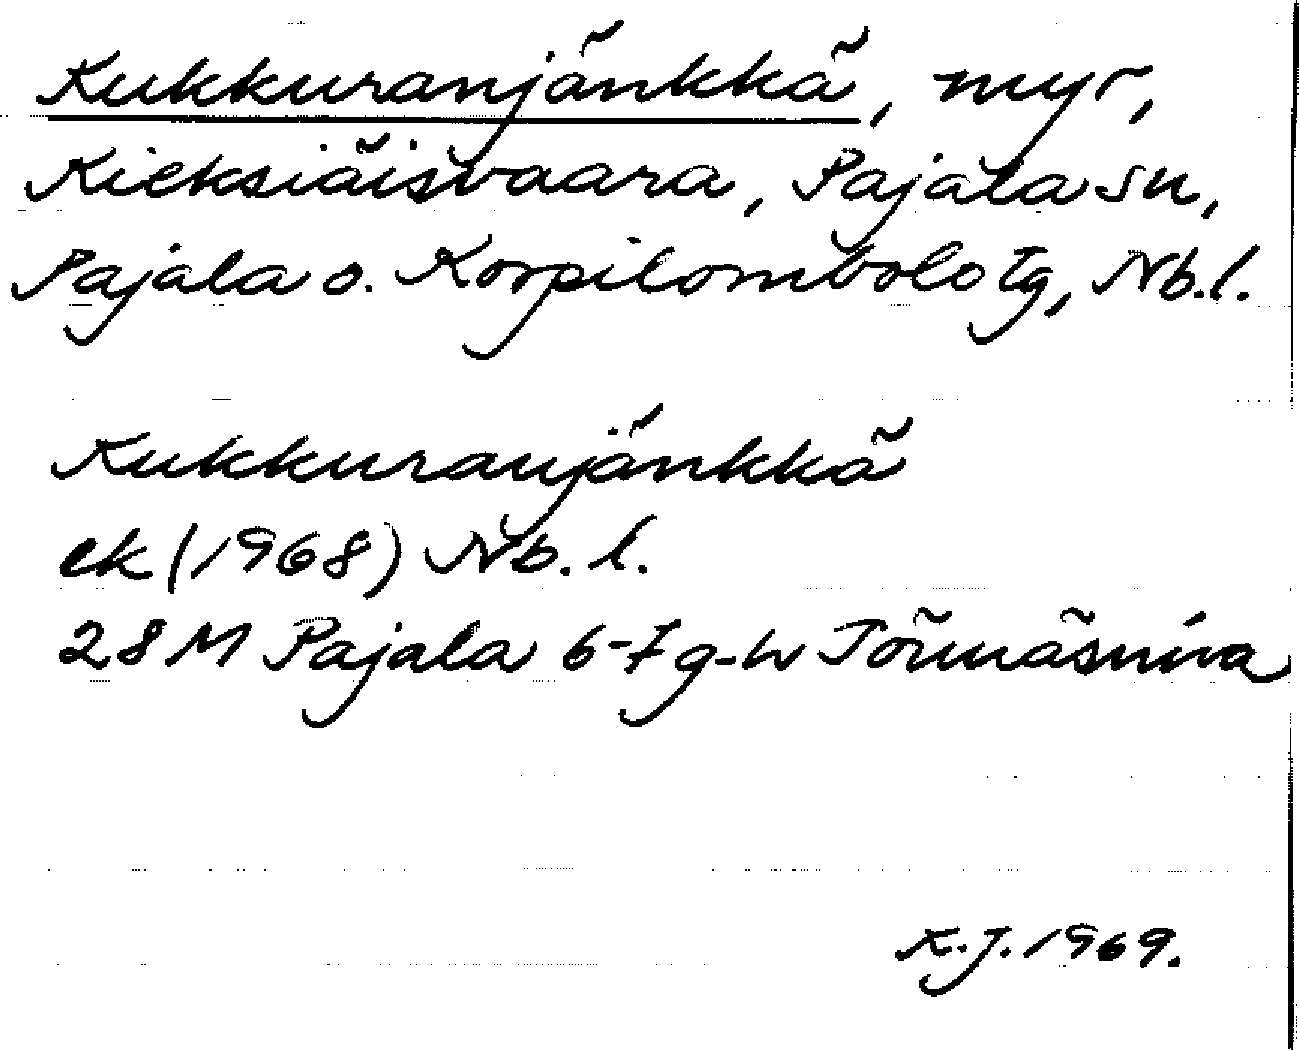 Kukkuranjänkkä, myr,
Kieksiäisvaara, Pajala sn,
Pajala o. Korpilombolo tg, Nb.l.
Kukkuranjänkkä
ek (1968) Nb. l.
28 M Pajala 6-7 g-h Törmäsniva
K.J. 1969.